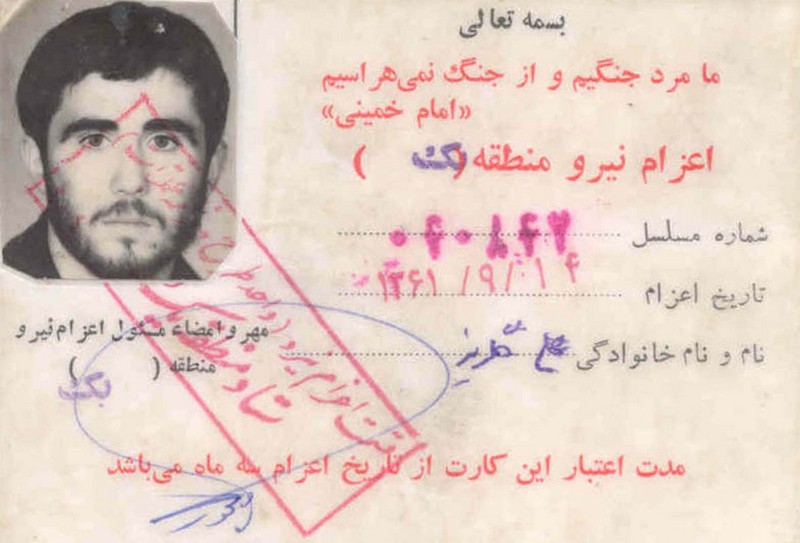 بسمه تعالی
ما مرد جنگیم و از جنگ نمی‌هراسیم
«امام خمینی»
اعزام نیرو منطقه (یک)
شماره مسلسل ۰۶۰۸۴۲
تاریخ اعزام ۱۳۶۱/۹/۱۴
نام و نام خانوادگی
مهر و امضاء مسئول اعزام نیرو
منطقه (یک)
مدت اعتبار این کارت از تاریخ اعزام سه ماه می‌باشد